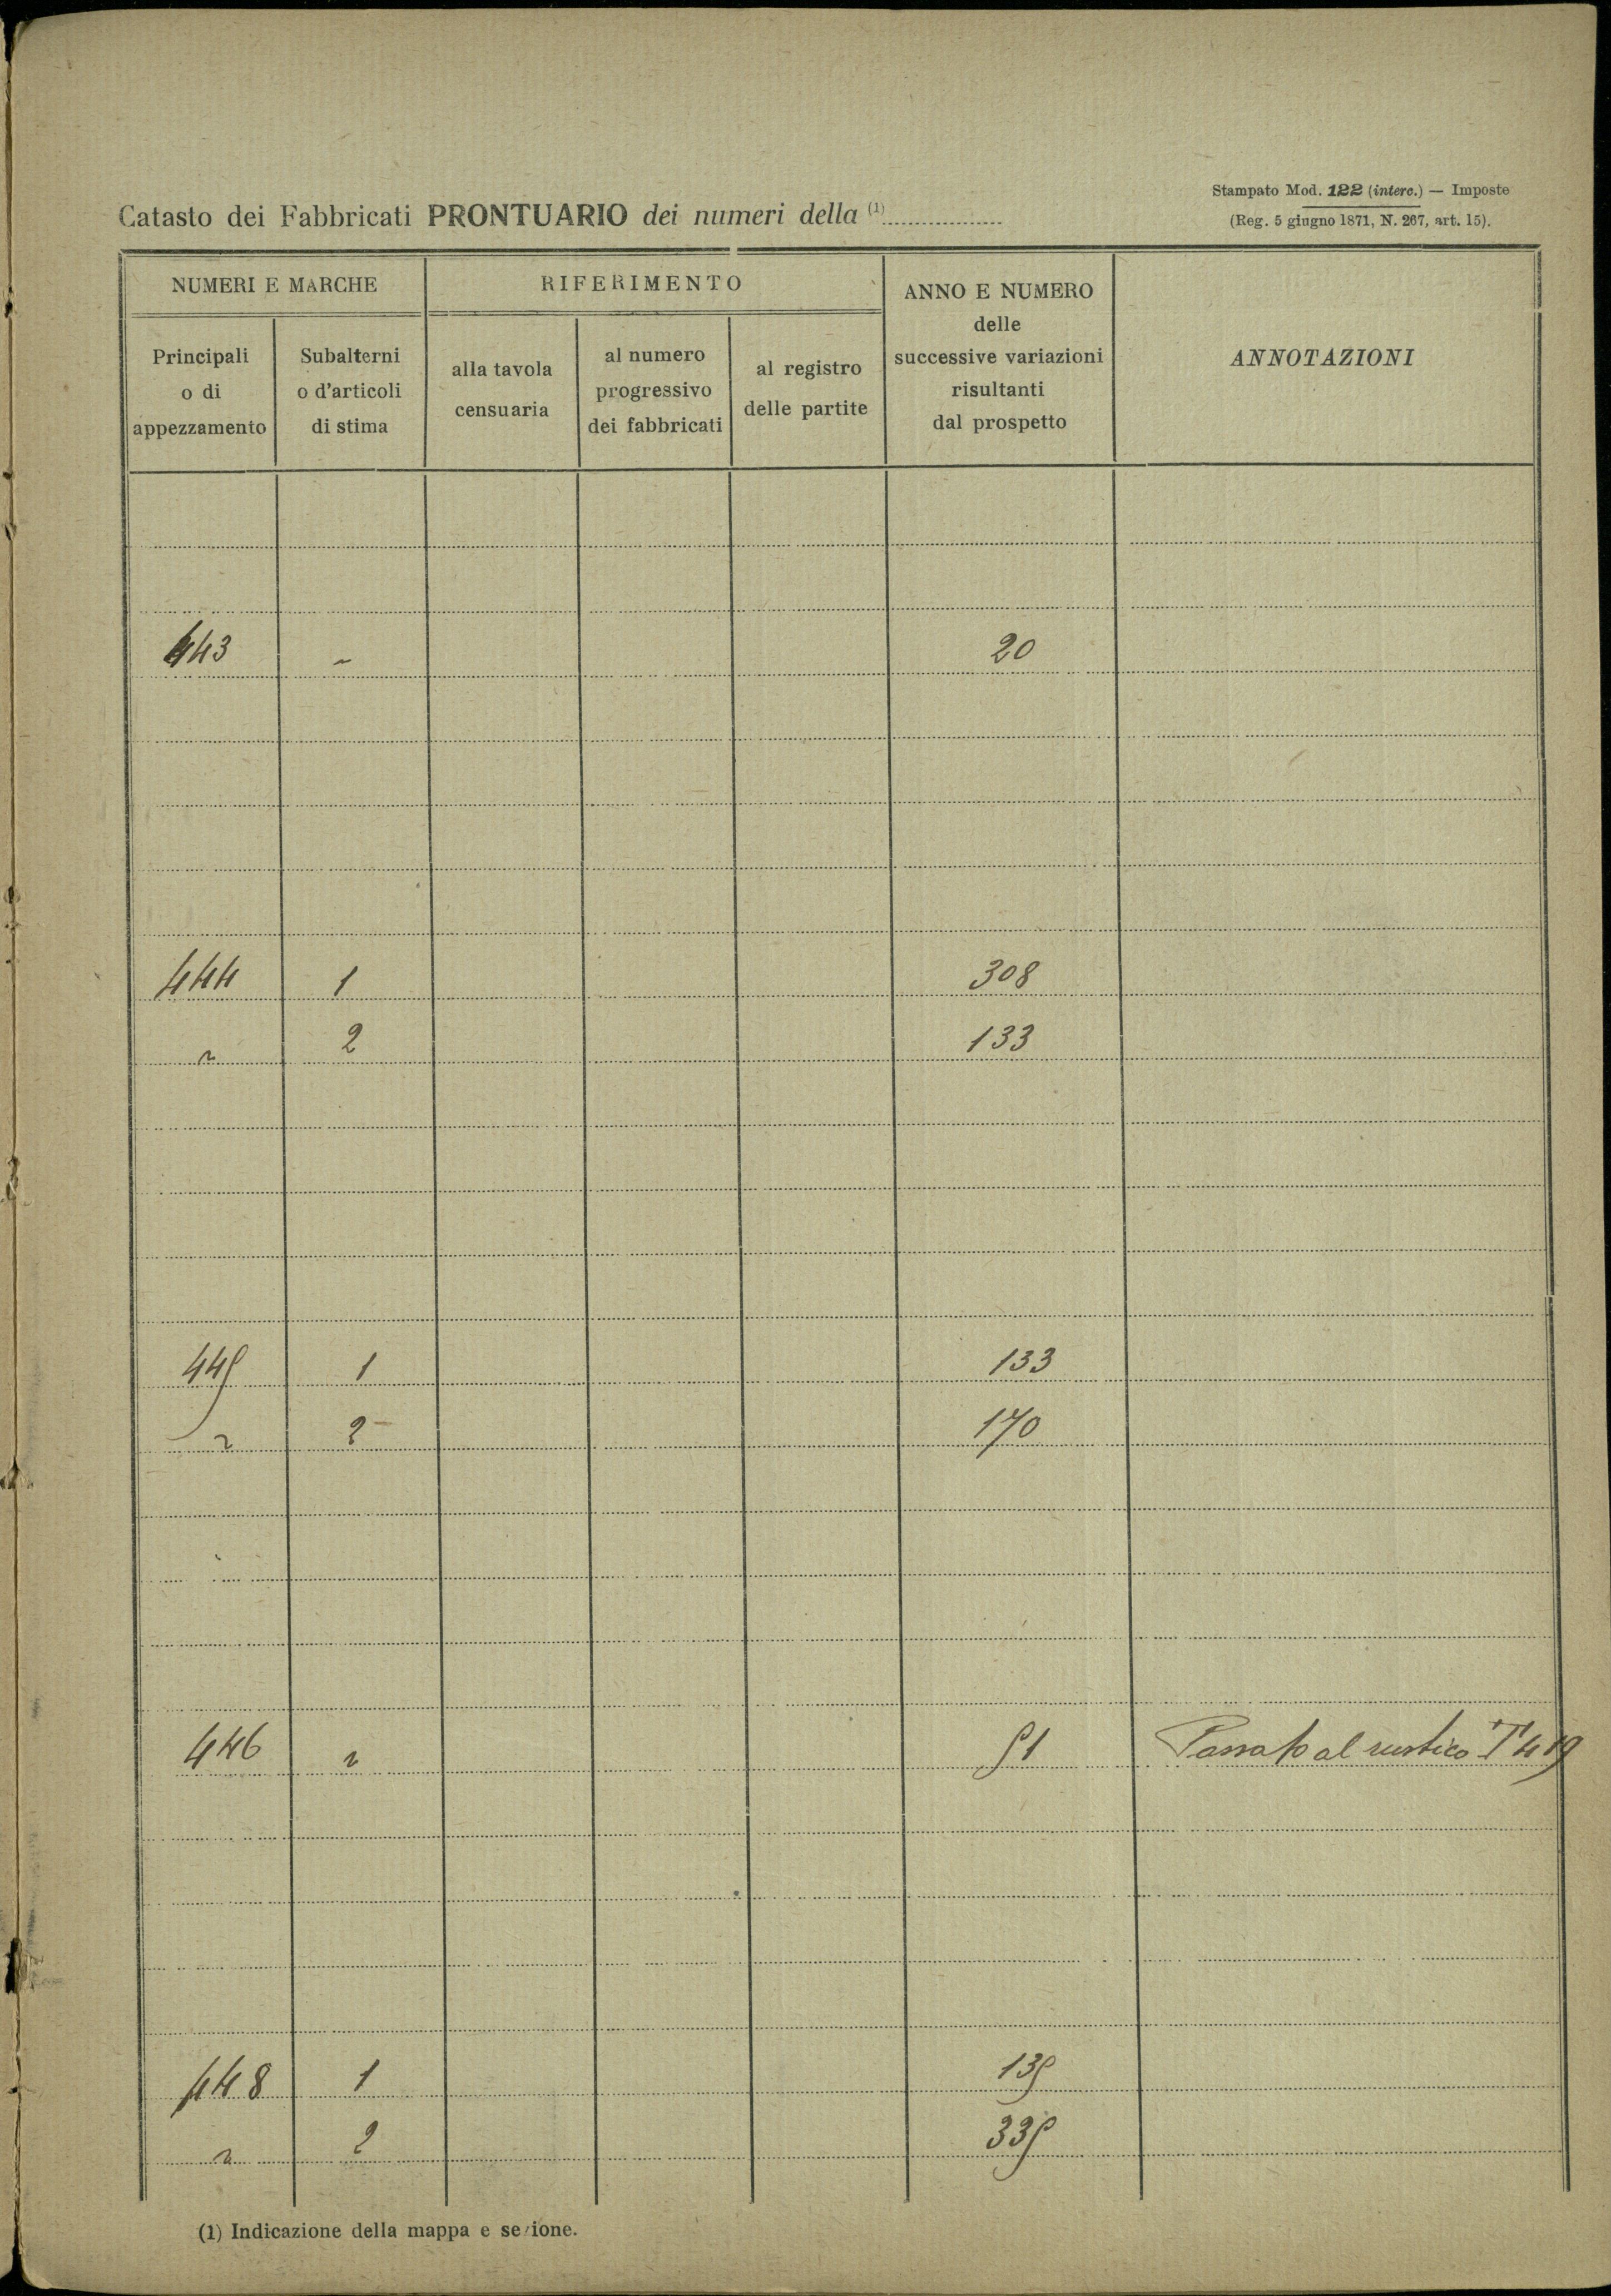 Stampato Mod. 122 (interc.) — Imposte
(Reg. 5 giugno 1871, N. 267, art. 15).
Catasto dei Fabbricati PRONTUARIO dei numeri della (1)
NUMERI E MARCHE
RIFERIMENTO
ANNO E NUMERO
delle
successive variazioni
risultanti
dal prospetto
ANNOTAZIONI
Principali
o di
appezzamento
Subalterni
o d'articoli
di stima
alla tavola
censuaria
al numero
progressivo
dei fabbricati
al registro
delle partite
443 - 20
444 1 308
" 2 133
445 1 133
" 2 170
446 " 51 Passato al rustico T 419
448 1 135
" 2 335
(1) Indicazione della mappa e sezione.